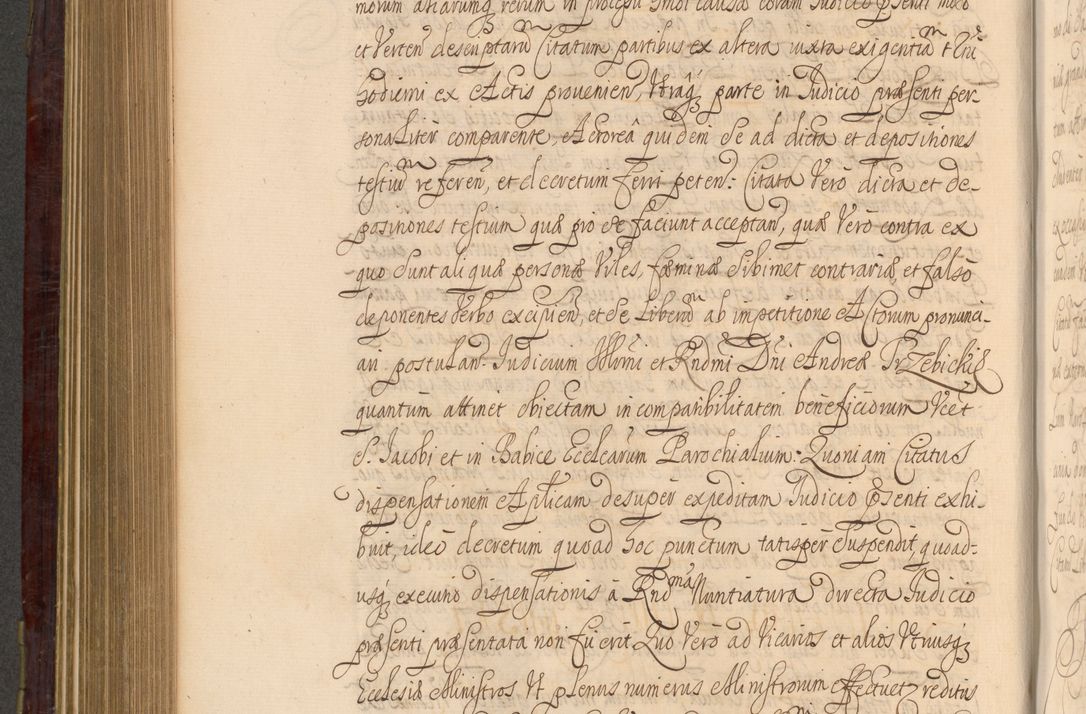 morum aliarumq rerum in processu huiusmodi causæ coram Iudicio pñsenti
et Verten descriptarũ Citatum partibus ex altera iuxta exigentiã
hodierni ex Actis provenien, Utraq parte in Iudicio præsenti per-
sonaliter comparente, Actorea quidem se ad dicta et depositiones
testiũ referen, et decretum ferri peten: Citata Verò dicta et de-
positiones testium quæ pro se faciunt acceptan, quæ Verò contra ex
quo sunt aliquæ personæ Viles, fæminæ sibimet contrariæ et falsò
deponentes Verbo excipien, et se Liberũ ab impetitione Actorum pronunci-
ari postulan. Iudicium Illrñi et Rndmi Dñi Andreæ Trzebicki
quantùm attinet obiectam incompatibilitatem beneficiorum Vcet
S. Iacobi et in Babice Ecclearum Parochialium. Quoniam Citatus
dispensationem Aplicam desuper expeditam Iudicio pñsenti exhi-
buit, ideò decretum quoad hoc punctum tatisper suspendit, quoad-
usq executio dispensationis à Rndma Nuntiatura directa Iudicio
præsenti præsentata non fuerit. Quo Verò ad Vicarios et alios Utriusq
Ecclesiæ Ministros Ut plenus numerus Ministrorum effectuet reditus